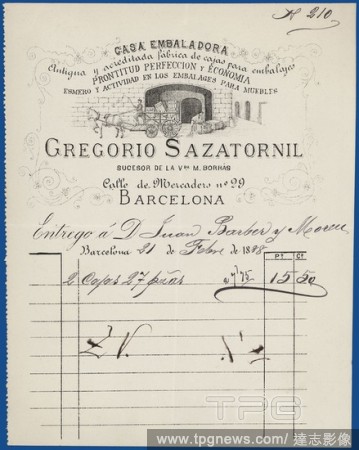 Nº 210
CASA EMBALADORA
Antigua y acreditada fábrica de cajas para embalajes
PRONTITUD PERFECCION Y ECONOMIA
ESMERO Y ACTIVIDAD EN LOS EMBALAGES PARA MUEBLES
GREGORIO SAZATORNIL
SUCESOR DE LA Vda M. BORRÁS
Calle de Mercaders nº 29
BARCELONA
Entrego á D. Juan Barber y
Barcelona 21 de Febre de 18 8
Pts Cs
2 Cajas 27 7'75 15 50
TPG
www.tpgnews.com / 達志影像